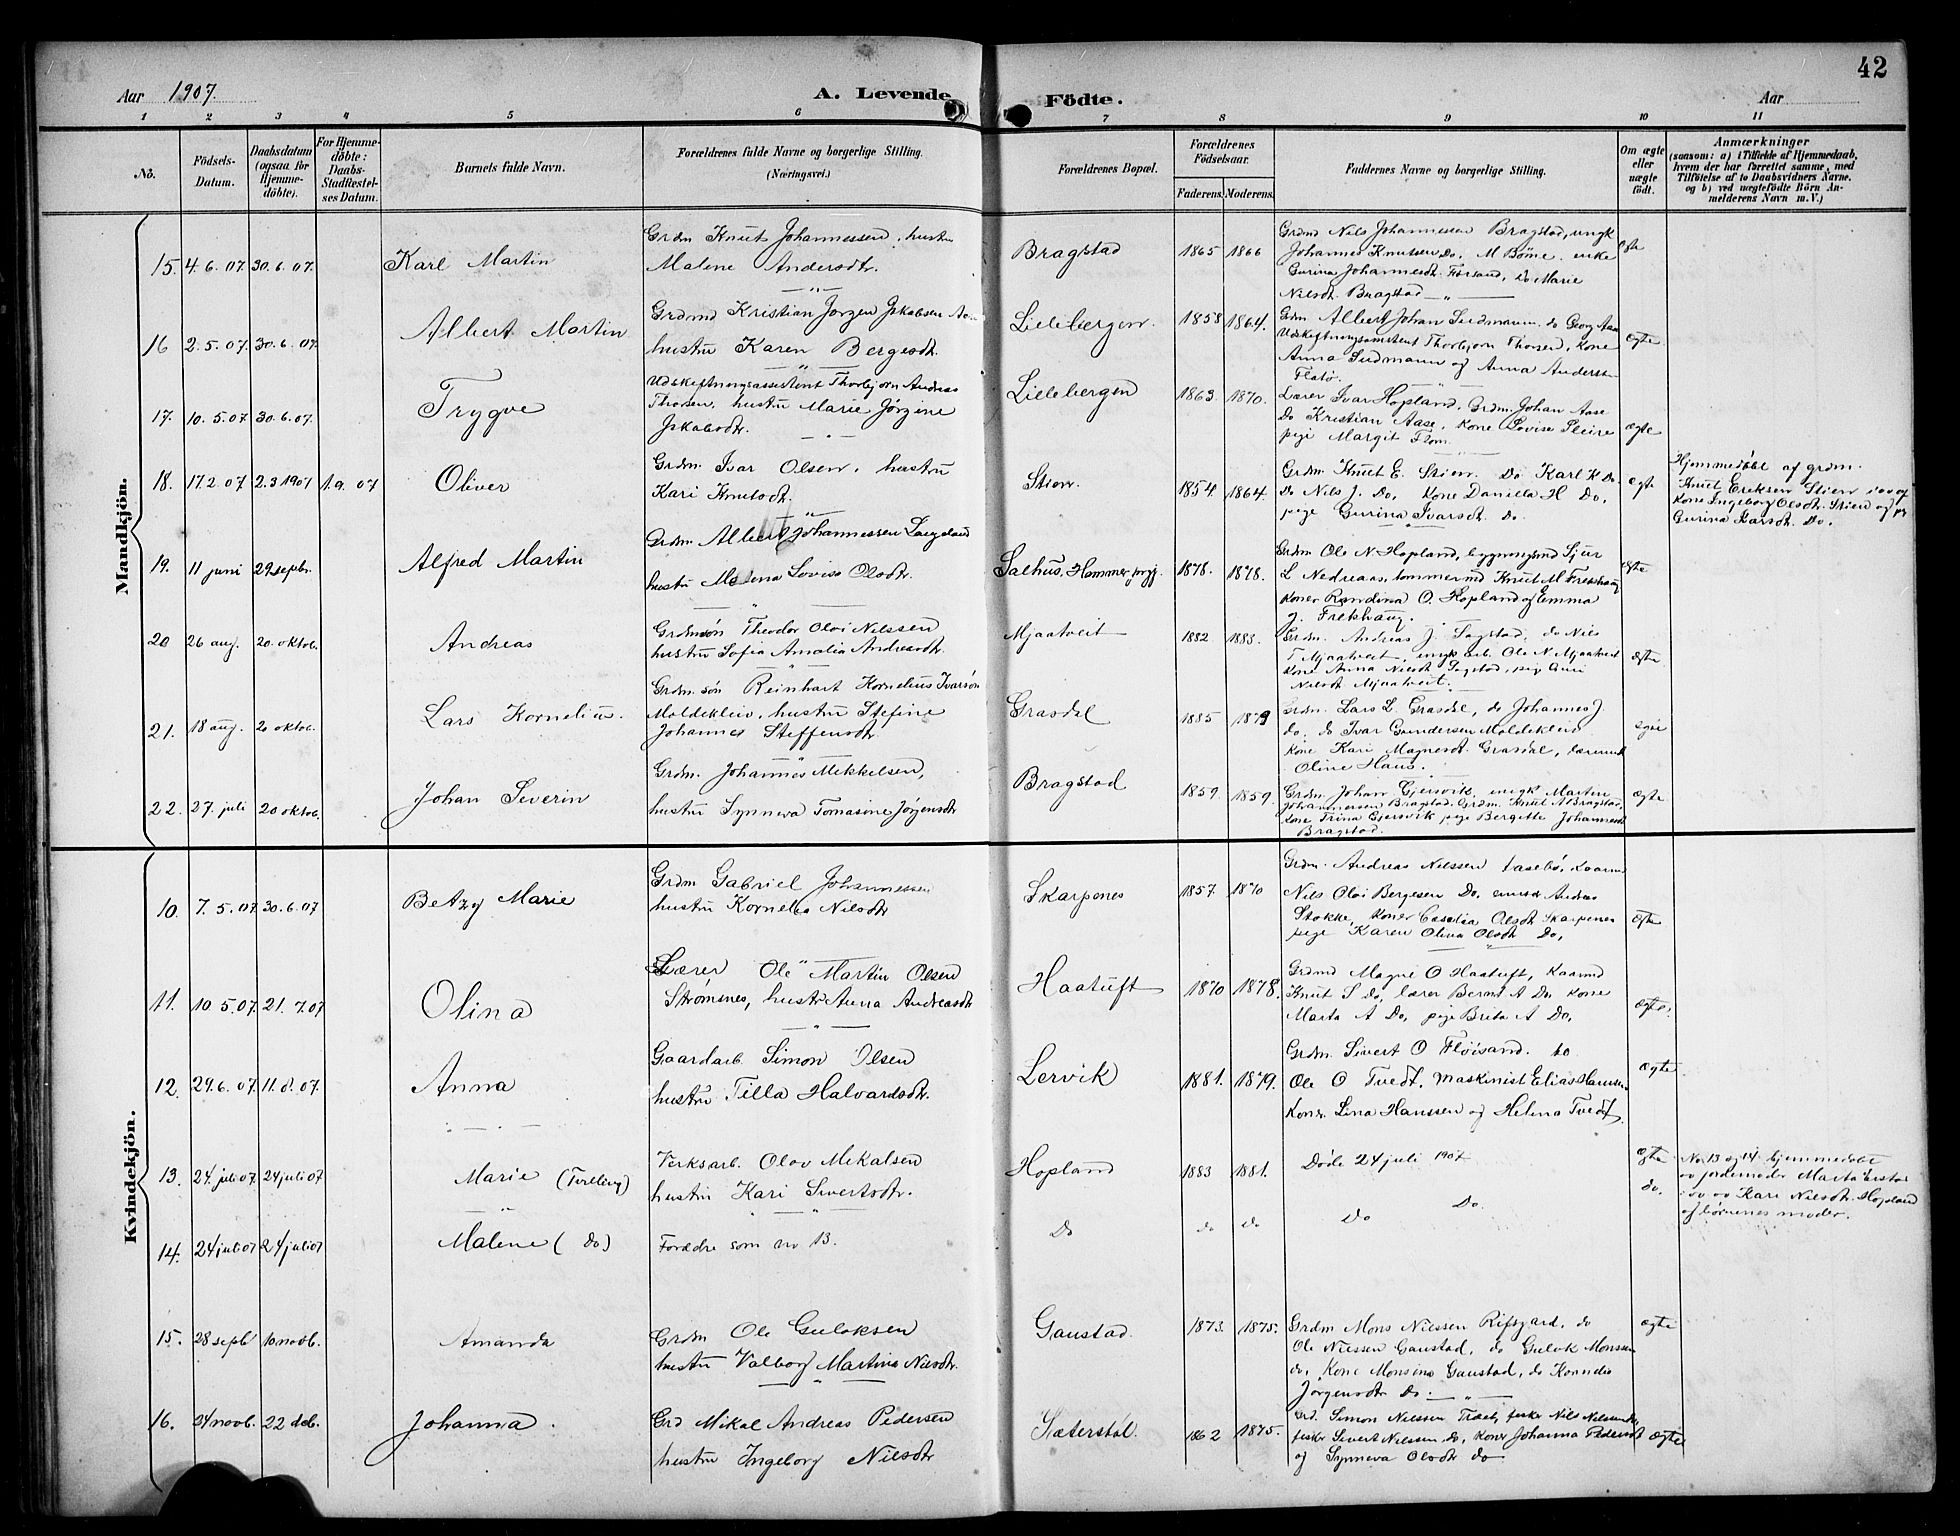 42
Aar 1907.
A. Levende Födte.
Aar
1 2 3 4 5 6 7 8 9 10 11
No.
Födsels-Datum.
Daabsdatum (ogsaa for Hjemme-döbte).
For Hjemme-döbte: Daabs-Stadfæstel-ses Datum.
Barnets fulde Navn.
Forældrenes fulde Navne og borgerlige Stilling.
(Næringsvei.)
Forældrenes Bopæl.
Forældrenes Födselsaar.
Faderens. Moderens.
Faddernes Navne og borgerlige Stilling.
Om ægte eller uægte födt.
Anmærkninger
(saasom: a) i Tilfælde af Hjemmedaab,
hvem der har forrettet samme, med
Tilföielse af to Daabsvidners Navne.
og b) ved uægtefödte Börn An-
melderens Navn m. V.)
Mandkjön.
15. 4.6.07. 30.6.07. Karl Martin
Grdm Knut Johannessen, hustru
Malene Andersdtr.
Bragstad 1865 1866
Grdmd Nils Johannessen Bragstad, ungk
Johannes Knutsen Do, M Böme. enke
Gurina Johannesdt. Forsand, do Marie
Nilsdt. Bragstad
ægte
16 2.5.07. 30.6.07. Albert Martin
Grdmd Kristian Jørgen Jakobsen
hustru Karen Bergesdt.
Lillebergen. 1858 1864.
Grdm Albert Johan Siedmann, do Georg Aase
Udskiftningsassistent Thorbjørn Thorsen, kone
Anna Siedmann og Anna Andersen
Flatø.
ægte
17. 10.5.07 30.6.07. Trygve
Udskiftningsassistent Thorbjørn Andreas
Thorsen, hustru Marie Jørgine
Jakobsdtr.
Lillebergen 1863. 1870.
Lærer Ivar Hopland, Grdm. Johan Aase
Do Kristian Aase, Kone Lovise Pleire
pige Margit Flom.
ægte
18. 17.2.07 2.3 1907 1.9.07 Oliver
Grdm. Ivar Olsen, hustru
Kari Knutsdt.
Stien. 1854. 1864.
Grdm Knut E. Stien, Do Karl K Do.
Do Nils J. Do, Kone Daniella H Do,
pige Gurina Ivarsdt. Do.
ægte
Hjemmedöbt af grdm.
Knut Eriksen Stien i ov af
Kone Ingeborg Olsdt. Stien og pg
Gurina Ivarsdt. Do.
19. 11 juni 29 septbr. Alfred Martin
Grdm Albert Johannessen Langeland
hustru Malena Lovise Olsdtr.
Salhus, Hammer prgj. 1878. 1878.
Grdm Ole N. Hopland, bygningsmd Sjur
L Nedreaas, tømmermd Knut M Frekhaug
Koner Randina O. Hopland og Emma
J. Frekhaug.
ægte
20 26 aug. 20. oktob. Andreas
Grdmsön Theodor Olai Nilssen
hustru Sofia Amalia Andreasdtr.
Mjaatveit 1882 1883.
Grdm. Andreas J. Sagstad, do Nils
T Mjaatveit, ungk arb. Ole N Mjaatveit
Kone Anna Nilsdt Sagstad, pige Guri
Nilsdt. Mjaatveit.
ægte
21. 18 aug. 20 oktob. Lars Kornelius.
Grdm. sön Reinhart Kornelius Ivarsön
Moldekleiv, hustru Stefine
Johannes Steffensdtr.
Grasdal 1885 1879
Grdm. Lars L. Grasdal, do Johannes J
do, do Ivar Gundersen Moldekleiv
Kone Kari Magnesdt. Grasdal, lærerinde
Oline Haus.
ægte
22. 27. juli 20 oktob. Johan Severin
Grdm. Johannes Mikkelsen,
hustru Synneva Tomasine Jørgensdtr
Bragstad 1859. 1859.
Grdm. Johan Gjersvik, ungk Martin
Johannessen Bragstad, Grdm. Knut A Bragstad,
Kone Trina Gjersvik pige Bergitte Johannesdt
Bragstad.
ægte
Kvindekjön.
10. 7.5.07. 30.6.07 Betzy Marie
Grdm Gabriel Johannessen
hustru Kornelia Nilsdtr
Skarpenes 1857. 1870
Grdm. Andreas Nilssen Aasebø, Kaarmd
Nils Olai Bergesen Do. Andreas
Stokke, Koner Cesilia Olsdt. Skarpenes
pige Karen Olina Olsdt Do,
ægte
11. 10.5.07. 21.7.07 Olina
Lærer Ole Martin Olsen
Strömsnes, hustru Anna Andreasdtr
Haatuft 1870 1878.
Grdmd Magne O Haatuft, Kaarmd
Knut S Do, lærer Bernt A Do, Kone
Marta A Do, pige Brita A Do,
ægte.
12. 29.6.07. 11.8.07. Anna
Gaardarb Simon Olsen
hustru Tilla Halvardsdtr.
Lervik 1881. 1879.
Grdm. Sivert O Fløisand. do
Ole O Tvedt, Maskinist Elias Hansen
Koner Lina Hanssen og Helena Tvedt
ægte
13. 24. juli 07. 24 juli 07 Marie (Tvilling)
Verksarb. Olav Mikalsen
hustru Kari Sivertsdtr.
Hopland 1883 1881.
Döde 24 juli 1907
ægte
No 13 og 14 hjemmedöbt
av jordemoder Marta
i ov av Kari Nilsdt. Hopland
og börnenes moder.
14. 24 juli 07 24 juli 07 Malene (do)
Forældre som no 13.
Do do do Do Do. do.
15. 28 septb 10 novb. Amanda
Grdm Ole Guloksen
hustru Valborg Martina Nilsdtr.
Gaustad. 1873. 1875.
Grdm Mons Nilssen Rifsgard, do
Ole Nilssen Gaustad, do Gulok Monssen
do, Kone Monsine Gaustad, do Kornelia
Jørgensdtr Do.
ægte
16. 24 novb. 22 deb. Johanna.
Grd Mikal Andreas Pedersen
hustru Ingeborg Nilsdtr
Sæterstøl. 1862 1875.
Grd. Simon Nilssen Træet, fisker Nils Nilssen do,
fisker Sivert Nilssen do, Koner Johanna Pedersdt
og Synneva Olsdtr do
ægte